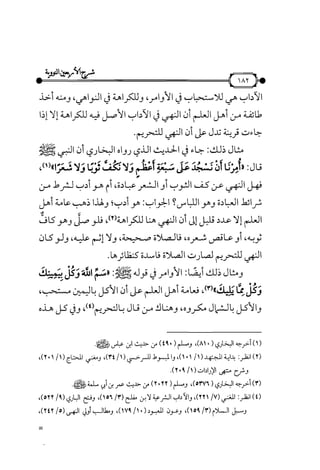 شرح الأربعين النووية
١٨٢
الآداب هي للاستحباب في الأوامر، وللكراهة في النواهي، ومنه أخذ
طائفة من أهل العلم أن النهي في الآداب الأصل فيه للكراهة إلا إذا
جاءت قرينة تدل على أن النهي للتحريم.
مثال ذلك: جاء في الحديث الذي رواه البخاري أن النبي ﷺ
قال: «أُمِرْنَا أَنْ نَسْجُدَ عَلَى سَبْعَةِ أَعْظُمٍ وَلَا نَكُفَّ ثَوْبًا وَلَا شَعَرًا»(١)،
فهل النهي عن كف الثوب أو الشعر عبادة، أم هو أدب لشرط من
شرائط العبادة وهو اللباس؟ الجواب: هو أدب؛ ولهذا ذهب عامة أهل
العلم إلا عدد قليل إلى أن النهي هنا للكراهة(٢)، فلو صلَّى وهو كافٌّ
ثوبه، أو عاقص شعره، فالصلاة صحيحة، ولا إثم عليه، ولو كان
النهي للتحريم لصارت الصلاة فاسدة كنظائرها.
ومثال ذلك أيضًا: الأوامر في قوله ﷺ: «سَمِّ اللهَ وَكُلْ بِيَمِينِكَ
وَكُلْ مِمَّا يَلِيكَ»(٣)، فعامة أهل العلم على أن الأكل باليمين مستحب،
والأكل بالشمال مكروه، وهناك من قال بالتحريم(٤)، وفي كل هذه
(١) أخرجه البخاري (٨١٠)، ومسلم (٤٩٠) من حديث ابن عباس.
(٢) انظر: بداية المجتهد (١/ ١٠١)، والمبسوط للسرخسي (١/ ٣٤)، ومغني المحتاج (١/ ٢٠١)،
وشرح منتهى الإرادات (١/ ٢٠٩).
(٣) أخرجه البخاري (٥٣٧٦)، ومسلم (٢٠٢٢) من حديث عمر بن أبي سلمة.
(٤) انظر: المغني (٧/ ٢٢١)، والآداب الشرعية لابن مفلح (٣/ ١٥٦)، وفتح الباري (٩/ ٥٢٢)،
وسبل السلام (٣/ ١٥٩)، وعون المعبود (١٠/ ١٧٩)، ومطالب أولي النهى (٥/ ٢٤٢)،